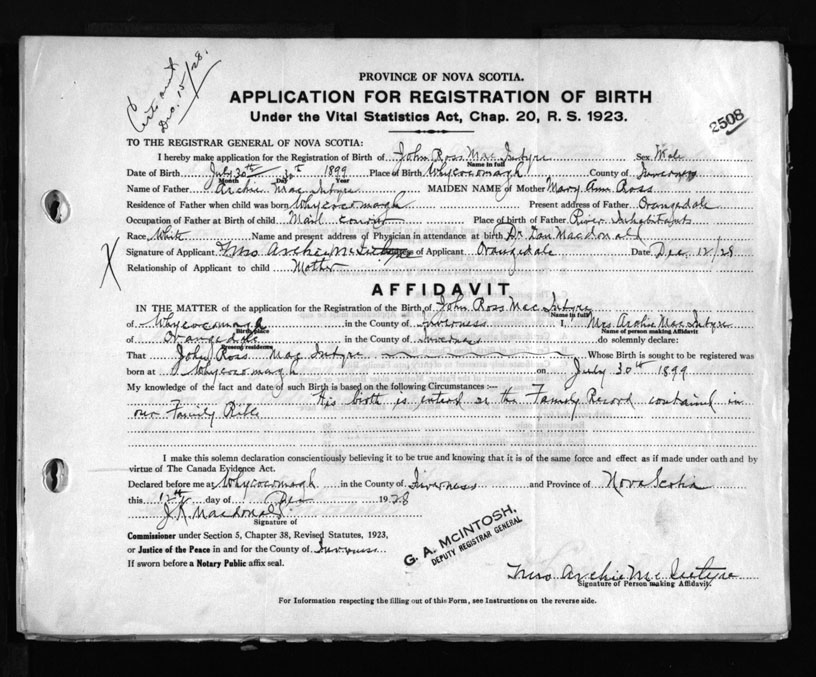 Certs sent
Dec. 15/28.
PROVINCE OF NOVA SCOTIA.
APPLICATION FOR REGISTRATION OF BIRTH
Under the Vital Statistics Act, Chap. 20, R. S. 1923.
2508
TO THE REGISTRAR GENERAL OF NOVA SCOTIA:
I hereby make application for the Registration of Birth of John Ross Mac Intyre Sex Male
Name in full
Date of Birth July 30th 1899 Place of Birth Whycocomagh County of Inverness
Month Day Year
Name of Father Archie Mac Intyre MAIDEN NAME of Mother Mary Ann Ross
Residence of Father when child was born Whycocomagh Present address of Father Orangedale
Occupation of Father at Birth of child Mail Courier Place of birth of Father River Inhabitants
Race White Name and present address of Physician in attendance at birth Dr. Ian MacDonald
X Signature of Applicant Mrs Archie McIntyre of Applicant Orangedale Date Dec. 12/28
Relationship of Applicant to child Mother
AFFIDAVIT
IN THE MATTER of the application for the Registration of the Birth of John Ross Mac Intyre
Name in full
of Whycocomagh in the County of Inverness I, Mrs. Archie Mac Intyre
Birth place Name of person making Affidavit
of Orangedale in the County of Inverness do solemnly declare:
Present residence
That John Ross Mac Intyre Whose Birth is sought to be registered was
born at Whycocomagh on July 30th 1899
My knowledge of the fact and date of such Birth is based on the following Circumstances :—
His birth is entered in the Family Record contained in
our Family Bible
I make this solemn declaration conscientiously believing it to be true and knowing that it is of the same force and effect as if made under oath and by
virtue of The Canada Evidence Act.
Declared before me at Whycocomagh in the County of Inverness and Province of Nova Scotia
this 12th day of Dec 1928
J. K. Macdonald
Signature of
Commissioner under Section 5, Chapter 38, Revised Statutes, 1923,
or Justice of the Peace in and for the County of Inverness
If sworn before a Notary Public affix seal.
G. A. McINTOSH,
DEPUTY REGISTRAR GENERAL
Mrs Archie Mc Intyre
Signature of Person making Affidavit.
For Information respecting the filling out of this Form, see Instructions on the reverse side.